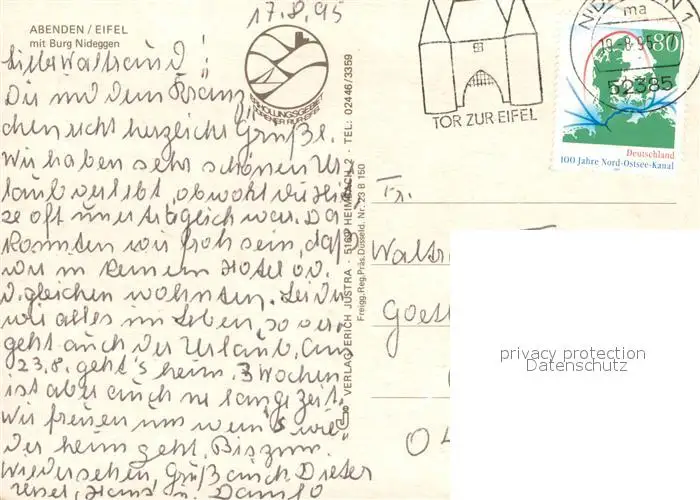 17.8.95
ABENDEN / EIFEL
mit Burg Nideggen
Liebe Waltraud!
Dir und dem Kränz
chen recht herzliche Grüße.
Wir haben sehr schönen Ur
laub verlebt, obwohl die Hit
ze oft unerträglich war. Da
konnten wir froh sein, daß
wir in keinem Hotel od.
dgleichen wohnten. Leider
wie alles im Leben, so ver
geht auch der Urlaub. Am
23.8. geht's heim. 3 Wochen
ist aber auch ne lange Zeit.
Wir freuen uns wenn's wie
der heim geht. Bis zum
Wiedersehen, Grüß auch Dieter
Hans u. Danilo
ERHOLUNGSGEBIET
DÜRENER RUR-EIFEL
VERLAG ERICH JUSTRA · 5169 HEIMBACH 2 · TEL: 02446/3359
Freigg.Reg.Präs.Düsseld. Nr. 23 B 150
TOR ZUR EIFEL
NIDEGGEN 1
ma
18.-8.95
52385
80
Deutschland
100 Jahre Nord-Ostsee-Kanal
Fr.
Waltr
Goet
0
privacy protection
Datenschutz